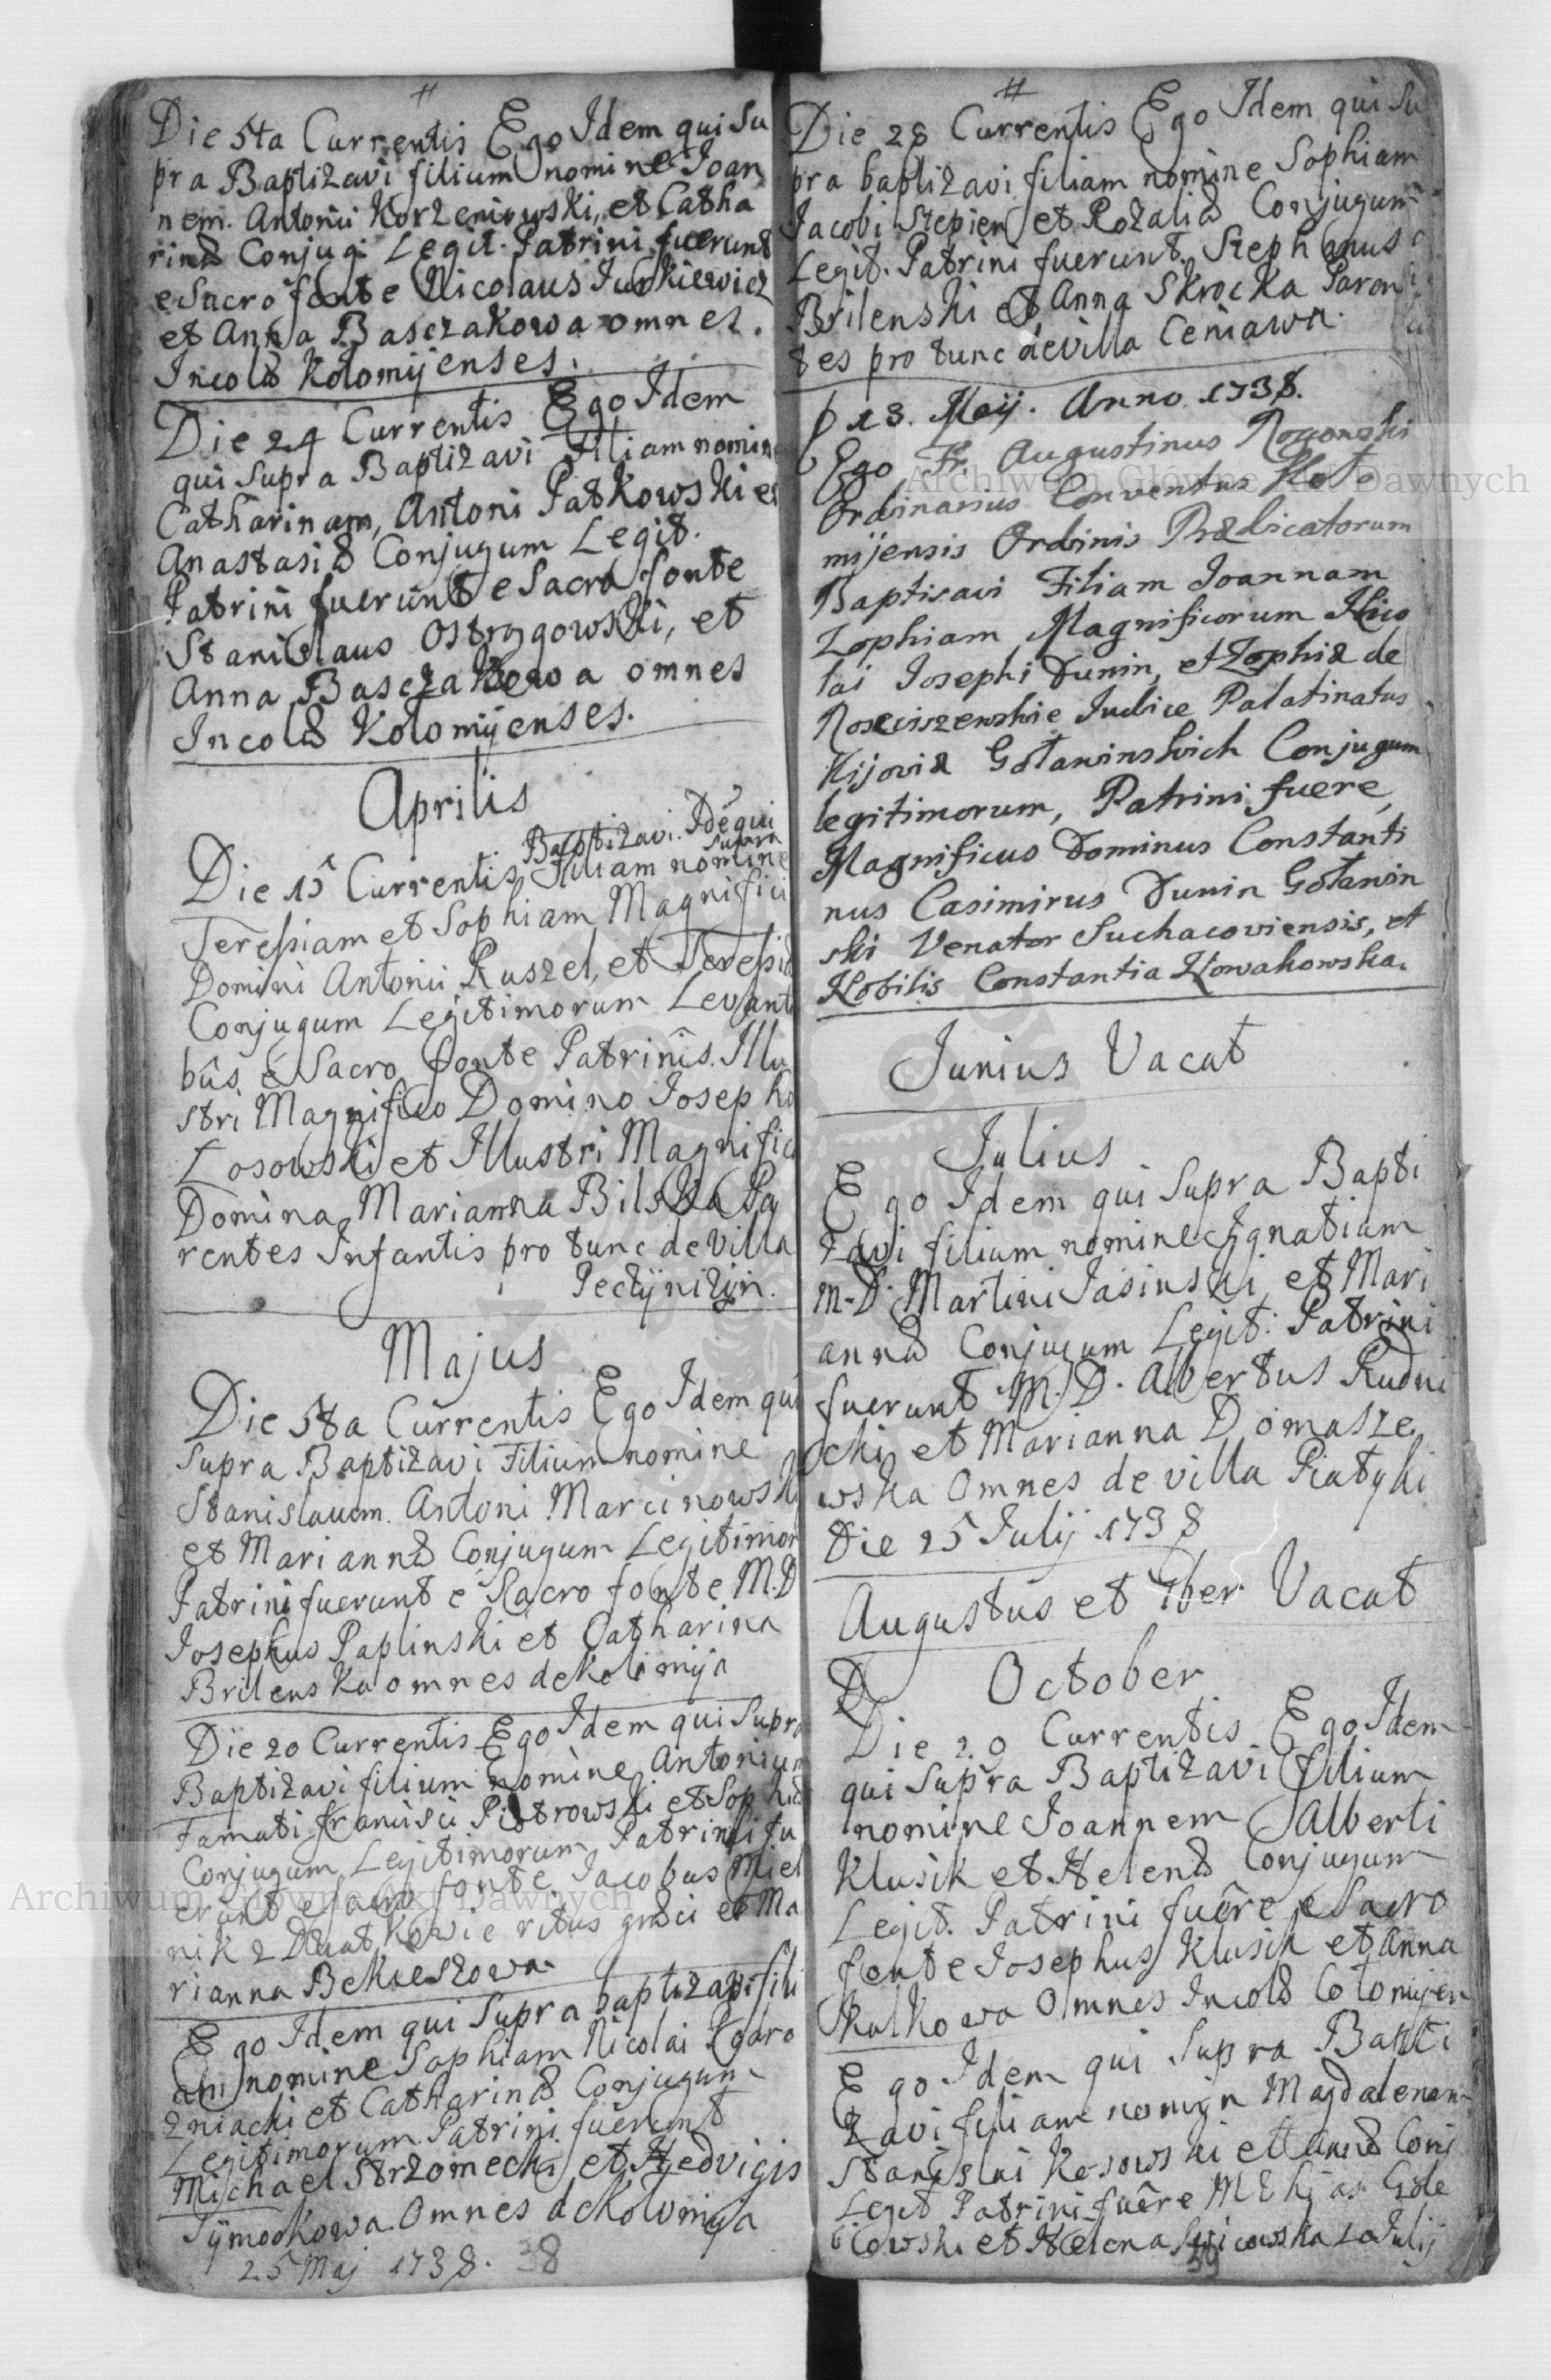 #
Die 5ta Currentis Ego Idem qui Su
pra Baptizavi filium nomine Joan
nem. Antonii Korzeniowski, et Catha
rinæ Conjug: Legit. Patrini fuerunt
e Sacro fonte Nicolaus Jurkiewicz
et Anna Basczakowa omnes.
Incolæ Kolomÿenses.
Die 24 Currentis Ego Idem
qui Supra Baptizavi Filiam nomin
Catharinam, Antoni Patkowski et
Anastasiæ Conjugum Legit.
Patrini fuerunt e Sacro fonte
Stanislaus Ostrzgowski, et
Anna Basczakowa omnes
Incolæ Kolomÿenses.
Aprilis
Baptizavi. Idē qui
supra
Die 15 Currentis Filiam nomine
Teressiam et Sophiam Magnifici
Domini Antonii Ruszel, et Teressiæ
Conjugum Legitimorum Levanti
bûs e Sacro fonte Patrinîs. Illu
stri Magnifico Domino Josepho
Łosowski et Illustri Magnifica
Domina Marianna Bilska Pa
rentes Infantis pro tunc de Villa
Peczÿniżÿn.
Majus
Die 5ta Currentis Ego Idem qui
Supra Baptizavi Filium nomine
Stanislaum. Antoni Marcinowski
et Mariannæ Conjugum Legitimor
Patrini fuerunt e Sacro fonte M.D
Josephus Paplinski et Catharina
Brilenska omnes de Kolomija
Die 20 Currentis Ego Idem qui Supra
Baptizavi filium nomine Antonium
Famati Francisci Piotrowski et Sophiæ
Conjugum Legitimorum Patrini fu
erunt e sacro fonte Jacobus Miel
nik z Diatkowie ritus græci et Ma
rianna Bekieszowa
Ego Idem qui Supra baptizavi fili
am nomine Sophiam Nicolai Zgaro
zniacki et Catharinæ Conjugum
Legitimorum Patrini fuerunt
Michael Strzomecki et Hedvigis
Sÿmonkowa. Omnes de Kolomija
25 Maj 1738. 38
#
Die 28 Currentis Ego Idem qui Su
pra baptizavi filiam nomine Sophiam
Jacobi Stepien et Rozaliæ Conjugum
Legit. Patrini fuerunt. Stephanus
Brilenski et Anna Skrocka Paren
tes pro tunc de villa Ceniawa.
D 13. Maij. Anno 1738.
Ego Fr. Augustinus
Ordinarius Conventus Kolo
mijensis Ordinis Prædicatorum
Baptisavi Filiam Joannam
Zophiam Magnificorum Nico
lai Josephi Dunin, et Zophiæ de
Rosciszewskie Judice Palatinatus
Kijoviæ Goławinskich Conjugum
legitimorum, Patrini fuere,
Magnificus Dominus Constanti
nus Casimirus Dunin Goławin
ski Venator Suchacoviensis, et
Nobilis Constantia Nowakowska.
Junius Vacat
Julius
Ego Idem qui Supra Bapti
zavi filium nomine Ignatium
M. D. Martini Jasinski, et Mari
annæ Conjugum Legit: Patrini
fuerunt M. D. Albertus Rudni
cki, et Marianna Domasze
wska Omnes de villa Piatyki
Die 25 Julij 1738
Augustus et 7ber Vacat
October
Die 20 Currentis Ego Idem
qui Supra Baptizavi filium
nomine Joannem Alberti
Klusik et Helenæ Conjugum
Legit. Patrini fuêre e Sacro
fonte Josephus Klusik et Anna
Kulkowa Omnes Incolæ Colomijen
Ego Idem qui Supra Bapti
zavi filiam nomin Magdalenam
Stanislai Kosowski et Annæ Conj
Legit Patrini fuêre
et Helena Julij
39
Archiwum Główne Akt Dawnych
Archiwum Główne Akt Dawnych